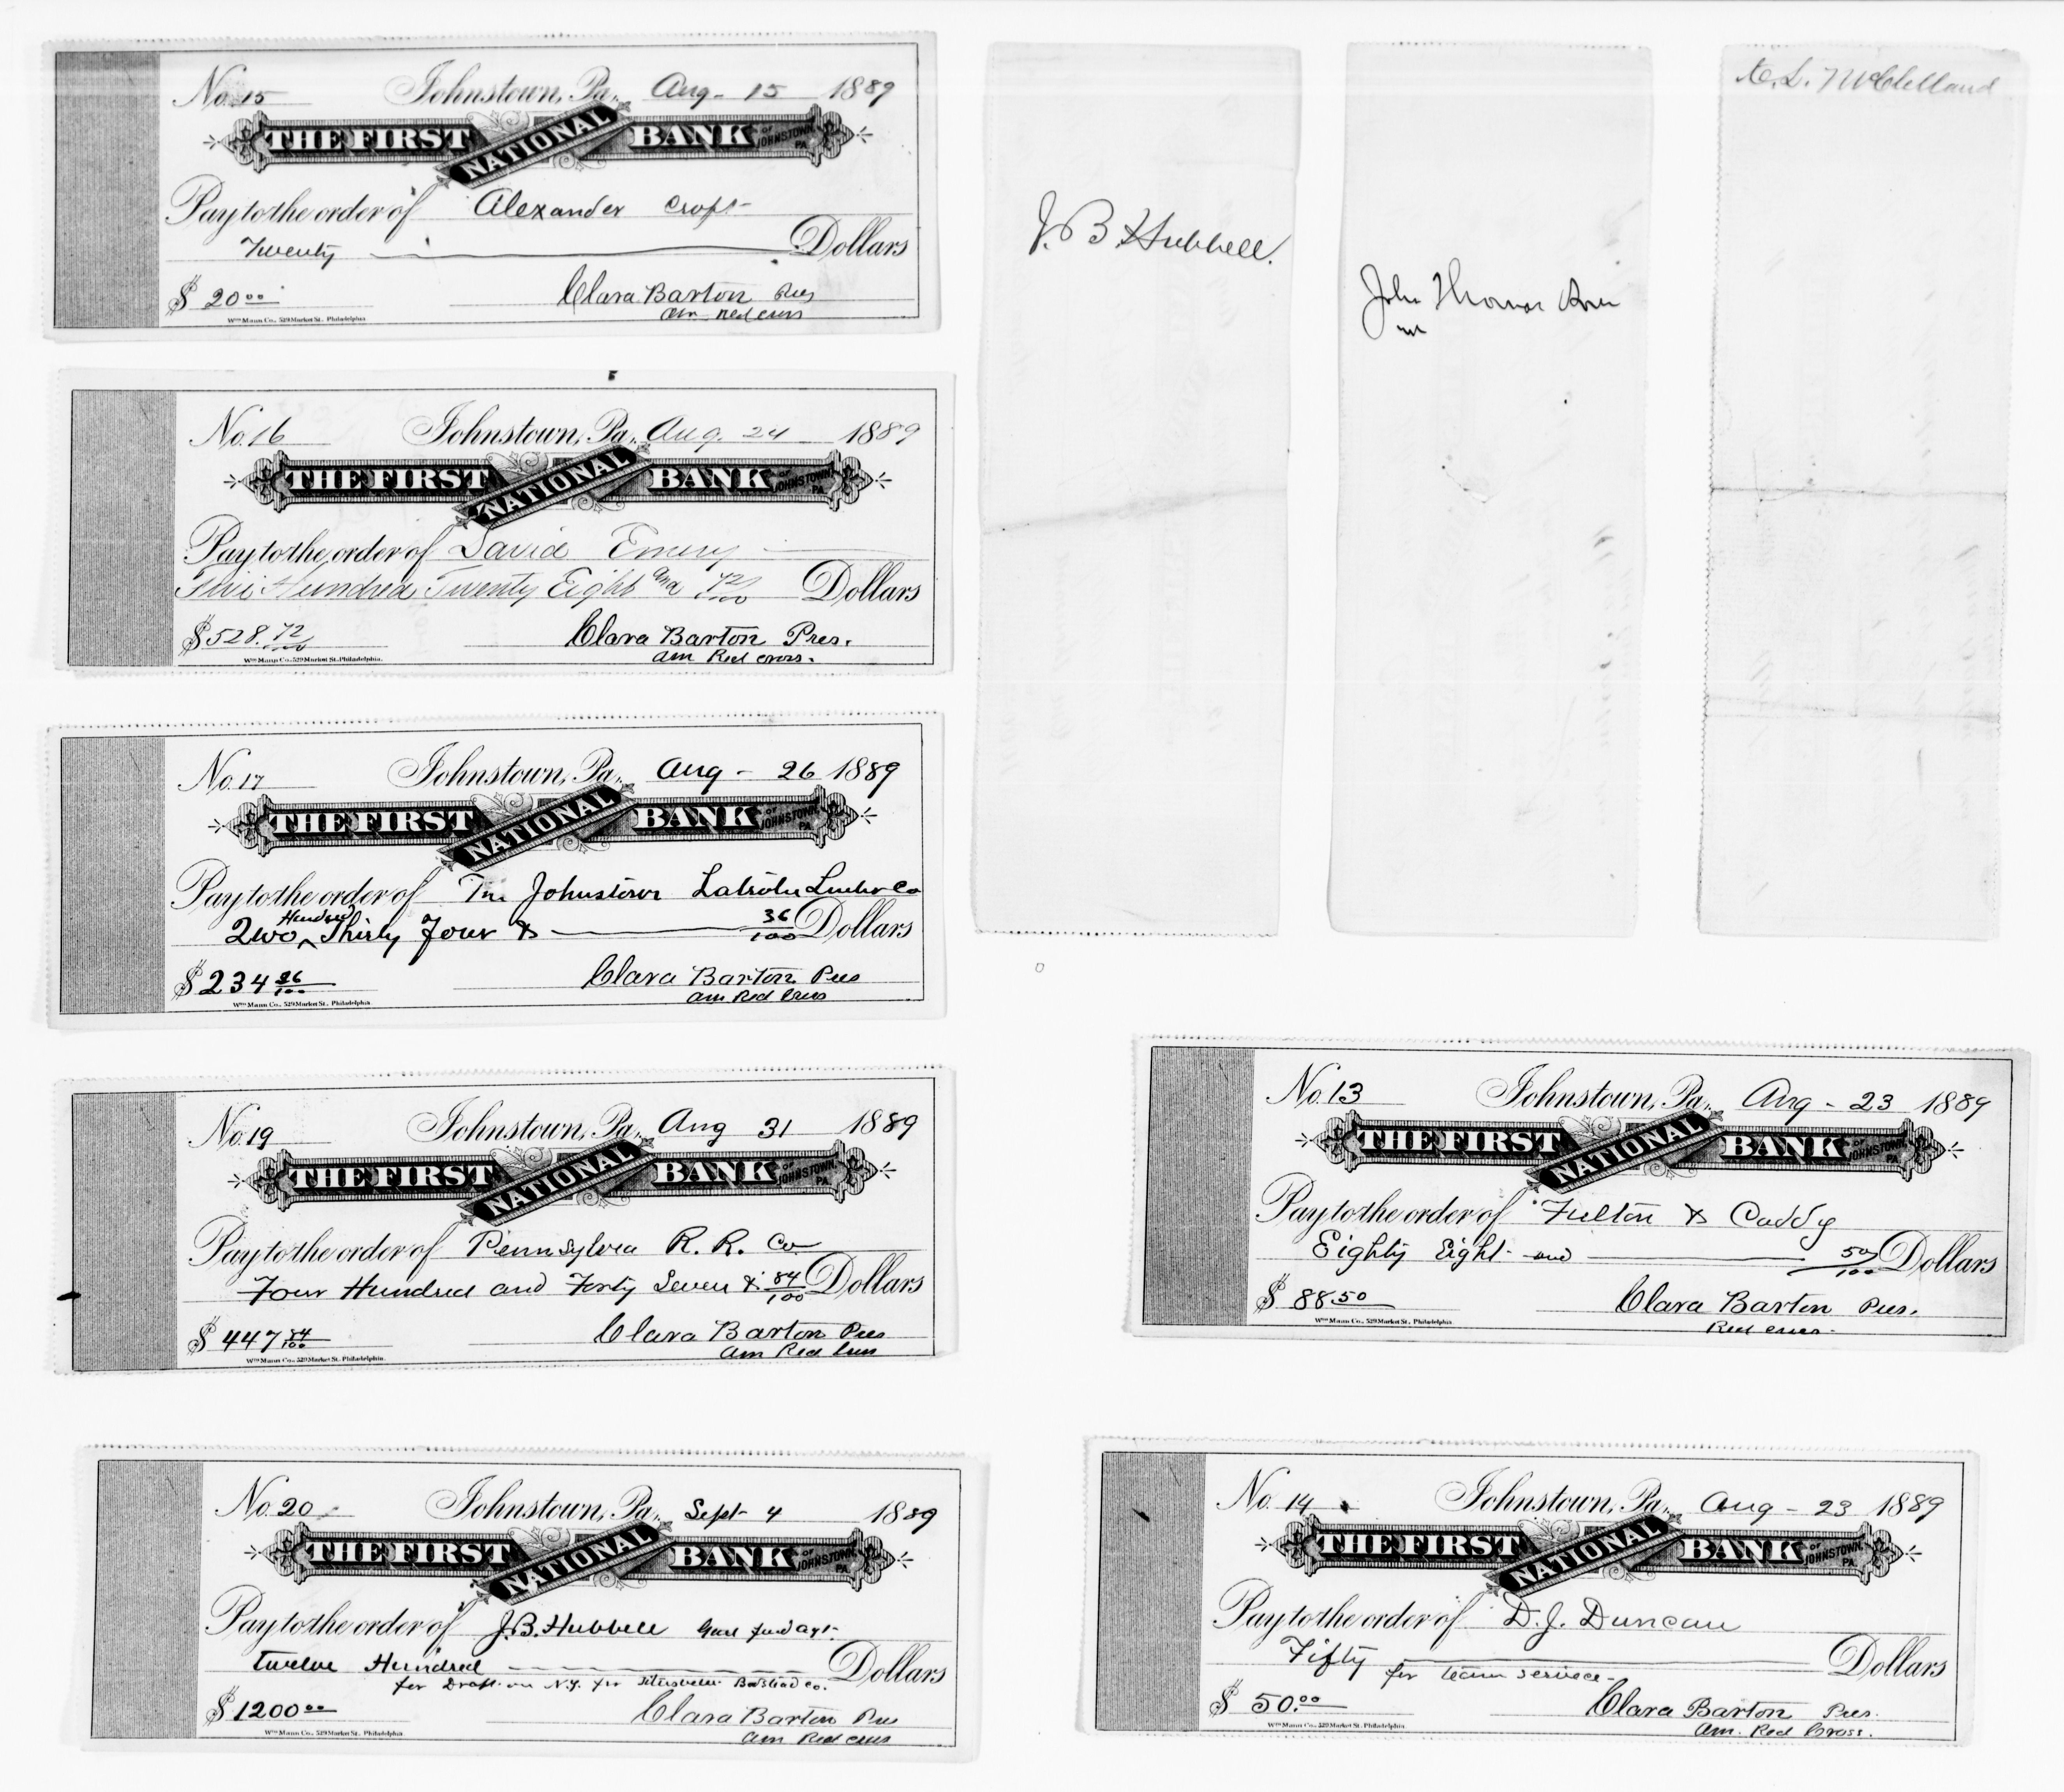 No. 15 Johnstown, Pa., Aug - 15 1889
THE FIRST NATIONAL BANK OF JOHNSTOWN, PA.
Pay to the order of Alexander Croft
Twenty Dollars
$ 20 00 Clara Barton Pres
Am Red Cross
Wm Mann Co., 529 Market St. Philadelphia
No. 16 Johnstown, Pa., Aug. 24 1889
THE FIRST NATIONAL BANK OF JOHNSTOWN, PA.
Pay to the order of David Emery
Hundred Twenty Eight and 72/100 Dollars
$ 528. 72/100 Clara Barton Pres.
Am Red Cross.
Wm Mann Co., 529 Market St. Philadelphia.
No. 17 Johnstown, Pa., Aug - 26 1889
THE FIRST NATIONAL BANK OF JOHNSTOWN, PA.
Pay to the order of The Johnstown Co
Two Hundred Thirty Four & 36/100 Dollars
$ 234 36/100 Clara Barton Pres
Am Red Cross
Wm Mann Co., 529 Market St. Philadelphia
No. 19 Johnstown, Pa., Aug 31 1889
THE FIRST NATIONAL BANK OF JOHNSTOWN, PA.
Pay to the order of Pennsylvea R. R. Co
Four Hundred and Forty Seven & 84/100 Dollars
$ 447 84/100 Clara Barton Pres
Am Red Cross
Wm Mann Co., 529 Market St. Philadelphia.
No. 20 Johnstown, Pa., Sept 4 1889
THE FIRST NATIONAL BANK OF JOHNSTOWN, PA.
Pay to the order of J. B. Hubbell
Twelve Hundred Dollars
for Draft on N.Y. for Co.
$ 1200 00 Clara Barton Pres
Am Red Cross
Wm Mann Co., 529 Market St. Philadelphia.
J. B. Hubbell.
John Thomas
McClelland
No. 13 Johnstown, Pa., Aug - 23 1889
THE FIRST NATIONAL BANK OF JOHNSTOWN, PA.
Pay to the order of Fulton & Caddy
Eighty Eight and 50/100 Dollars
$ 88.50 Clara Barton Pres.
Red Cross.
Wm Mann Co., 529 Market St. Philadelphia
No. 14 Johnstown, Pa., Aug - 23 1889
THE FIRST NATIONAL BANK OF JOHNSTOWN, PA.
Pay to the order of D. J. Duncan
Fifty Dollars
for team service
$ 50.00 Clara Barton Pres.
Am. Red Cross.
Wm Mann Co., 529 Market St. Philadelphia